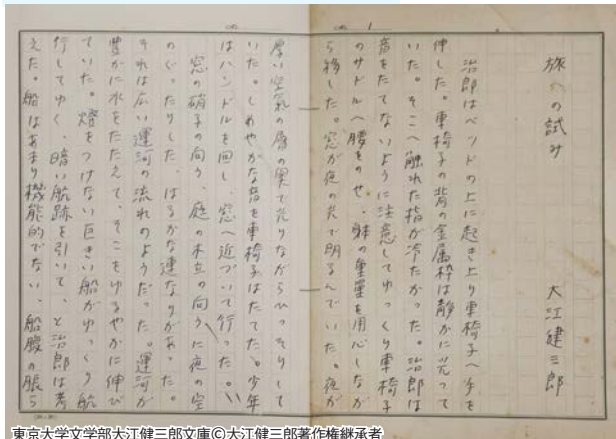 旅への試み
大江健三郎
治郎はベッドの上に起き上り車椅子へ手を
伸した。車椅子の背の金属枠は静かに光って
いた。そこへ触れた指が冷たかった。治郎は
音をたてないように注意してゆっくり車椅子
のサドルへ腰をのせ、躰の重量を用心しなが
ら移した。窓が夜の光で明るんでいた。夜が
厚い空気の層の奥で光りながらひっそりして
いた。しめやかな音を車椅子はたてた。少年
はハンドルを回し、窓へ近づいて行った。
窓の硝子の向う、庭の木立の向うに夜の空
のぐったりした、はるかな連なりがあった。
それは広い運河の流れのようだった。運河が
豊かに水をたたえて、そこをゆるやかに伸び
ていた。燈をつけない巨きい船がゆっくり航
行してゆく、暗い航跡を引いて、と治郎は考
えた。船はあまり機能的でない、船腹の脹ら
東京大学文学部大江健三郎文庫©大江健三郎著作権継承者